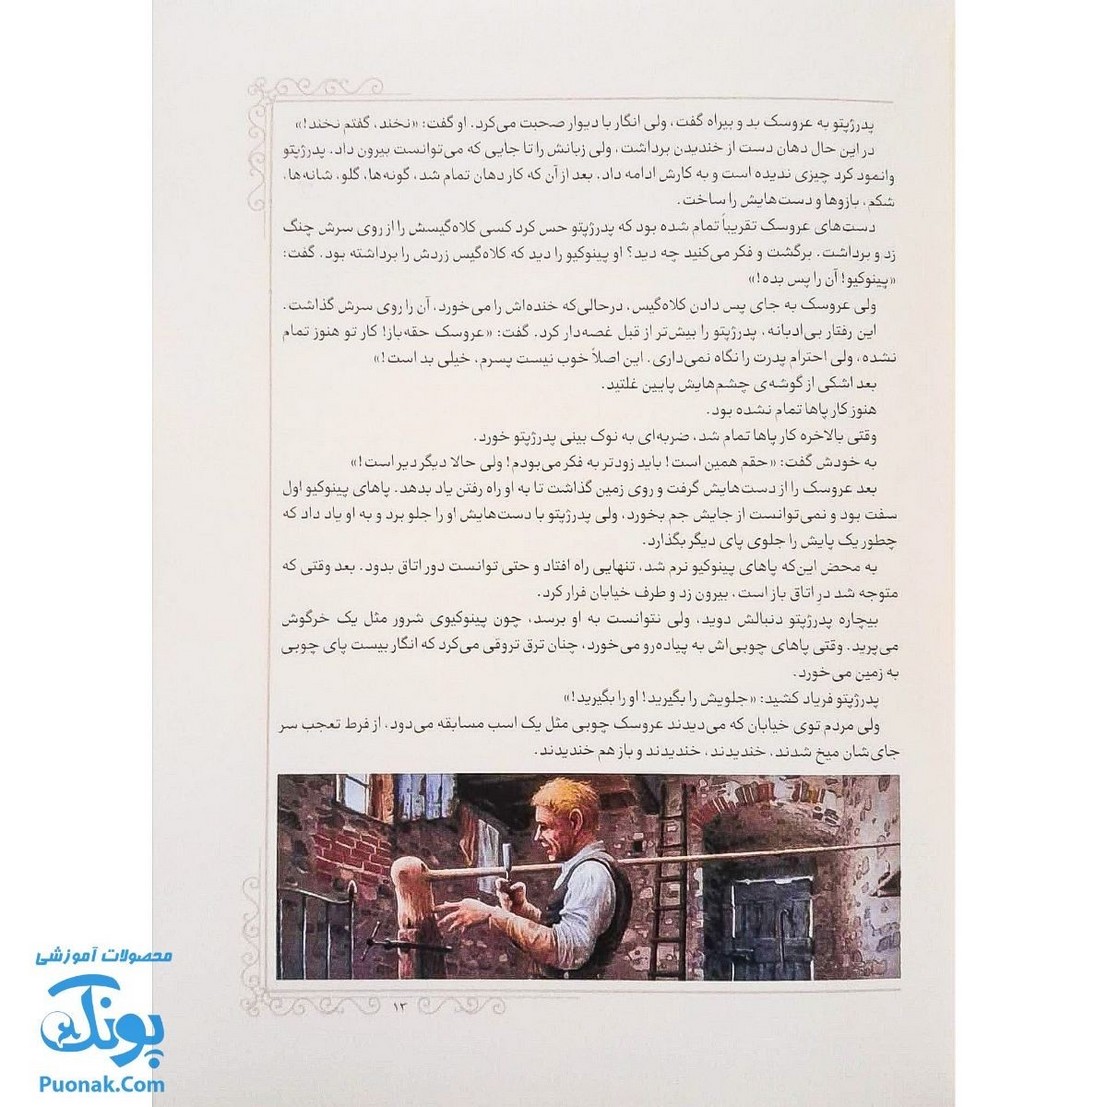 پدرژپتو به عروسک بد و بیراه گفت، ولی انگار با دیوار صحبت می‌کرد. او گفت: «نخند، گفتم نخند!»
در این حال دهان دست از خندیدن برداشت، ولی زبانش را تا جایی که می‌توانست بیرون داد. پدرژپتو
وانمود کرد چیزی ندیده است و به کارش ادامه داد. بعد از آن که کار دهان تمام شد، گونه‌ها، گلو، شانه‌ها،
شکم، بازوها و دست‌هایش را ساخت.
دست‌های عروسک تقریباً تمام شده بود که پدرژپتو حس کرد کسی کلاه‌گیسش را از روی سرش چنگ
زد و برداشت. برگشت و فکر می‌کنید چه دید؟ او پینوکیو را دید که کلاه‌گیس زردش را برداشته بود. گفت:
«پینوکیو! آن را پس بده!»
ولی عروسک به جای پس دادن کلاه‌گیس، درحالی‌که خنده‌اش را می‌خورد، آن را روی سرش گذاشت.
این رفتار بی‌ادبانه، پدرژپتو را بیش‌تر از قبل غصه‌دار کرد. گفت: «عروسک حقه‌باز! کار تو هنوز تمام
نشده، ولی احترام پدرت را نگاه نمی‌داری. این اصلاً خوب نیست پسرم، خیلی بد است!»
بعد اشکی از گوشه‌ی چشم‌هایش پایین غلتید.
هنوز کار پاها تمام نشده بود.
وقتی بالاخره کار پاها تمام شد، ضربه‌ای به نوک بینی پدرژپتو خورد.
به خودش گفت: «حقم همین است! باید زودتر به فکر می‌بودم! ولی حالا دیگر دیر است!»
بعد عروسک را از دست‌هایش گرفت و روی زمین گذاشت تا به او راه رفتن یاد بدهد. پاهای پینوکیو اول
سفت بود و نمی‌توانست از جایش جم بخورد، ولی پدرژپتو با دست‌هایش او را جلو برد و به او یاد داد که
چطور یک پایش را جلوی پای دیگر بگذارد.
به محض این‌که پاهای پینوکیو نرم شد، تنهایی راه افتاد و حتی توانست دور اتاق بدود. بعد وقتی که
متوجه شد درِ اتاق باز است، بیرون زد و طرف خیابان فرار کرد.
بیچاره پدرژپتو دنبالش دوید، ولی نتوانست به او برسد، چون پینوکیوی شرور مثل یک خرگوش
می‌پرید. وقتی پاهای چوبی‌اش به پیاده‌رو می‌خورد، چنان ترق تروقی می‌کرد که انگار بیست پای چوبی
به زمین می‌خورد.
پدرژپتو فریاد کشید: «جلویش را بگیرید! او را بگیرید!»
ولی مردم توی خیابان که می‌دیدند عروسک چوبی مثل یک اسب مسابقه می‌دود، از فرط تعجب سر
جای‌شان میخ شدند، خندیدند، خندیدند و باز هم خندیدند.
۱۳
محصولات آموزشی
پونک
Puonak.Com